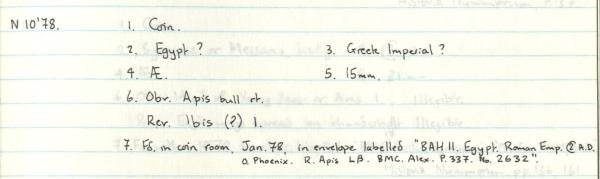 N 10'78. 1. Coin.
2. Egypt ? 3. Greek Imperial ?
4. Æ. 5. 15mm.
6. Obv. Apis bull rt.
Rev. Elbis (?) l.
7. Fd. in coin room, Jan. 78, in envelope labelled "BAH II. Egypt. Roman Emp. ② A.D.
O. Phoenix. R. Apis LB. BMC. Alex. P.337. No. 2632".